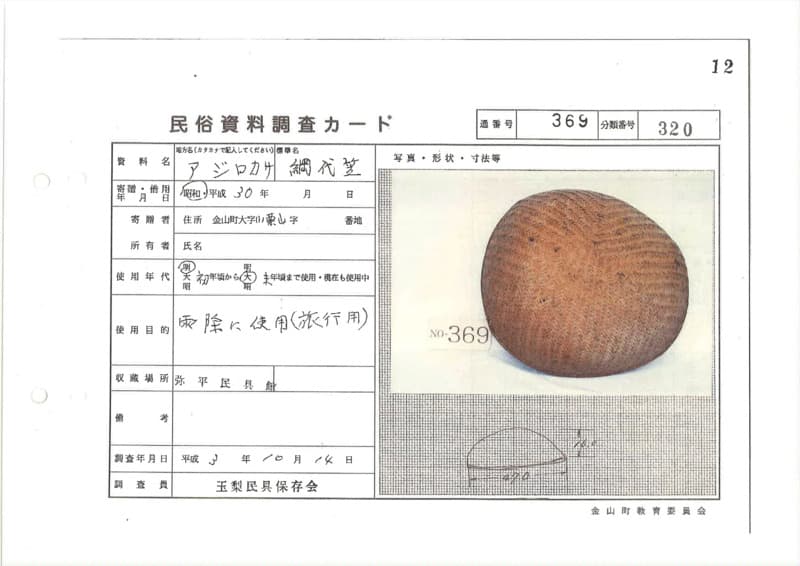 12
民俗資料調査カード
通番号 369 分類番号 320
資料名
地方名(カタカナで記入してください) アジロカサ
標準名 網代笠
写真・形状・寸法等
寄贈・借用
年月日
昭和・平成 30年 月 日
寄贈者 住所 金山町大字 字 番地
所有者 氏名
使用年代
明 大 昭 初年頃から 明 大 昭 末年頃まで使用・現在も使用中
使用目的 雨除に使用(旅行用)
収蔵場所 弥平民具館
備考
調査年月日 平成 3年 10月 14日
調査員 玉梨民具保存会
NO-369
16.0
47.0
金山町教育委員会